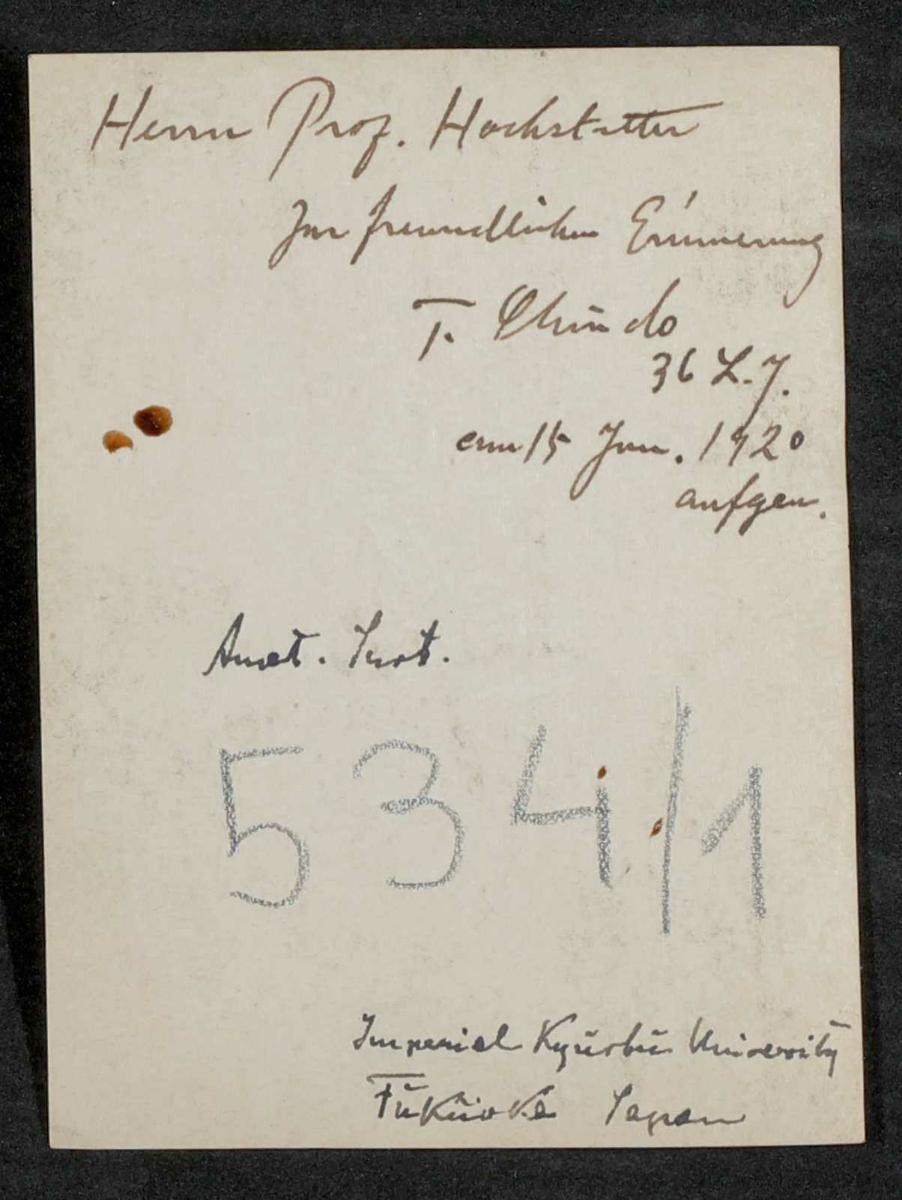 Herrn Prof. Hochstetter
Zur freundlichen Erinnerung
T. Shindo
36 L. J.
am 15 Jan. 1920
aufgen.
Anat. Inst.
534/1
Imperial Kyūshū University
Fūkūoka Japan